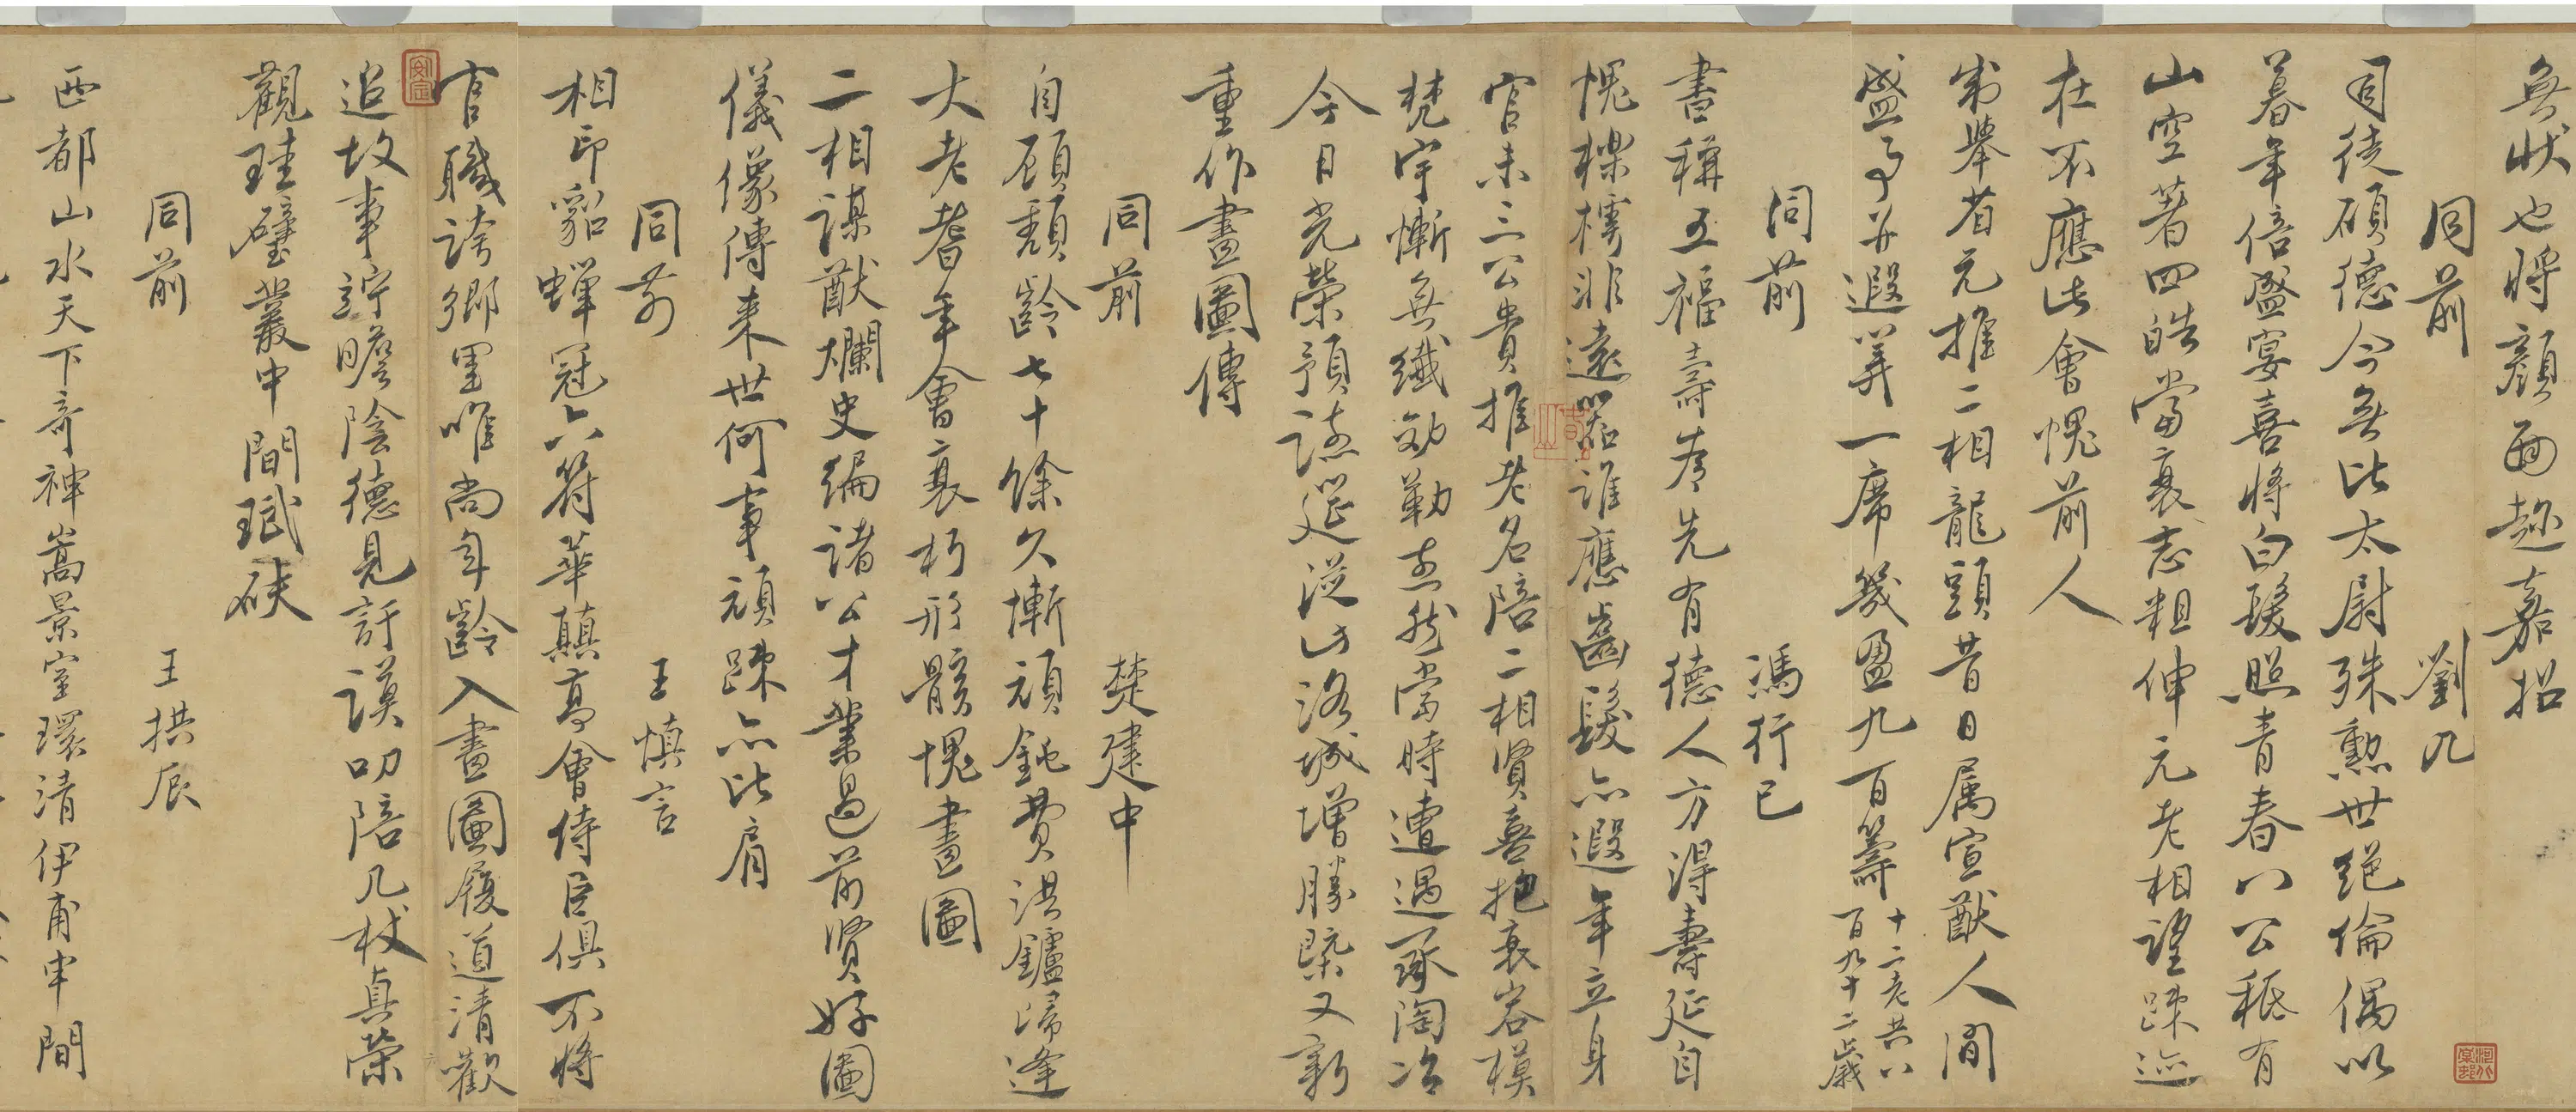 無狀也將顏面趂嘉招
同前 劉几
司徒碩德今無比太尉殊勳世絕倫偶以
暮年倍盛宴喜將白髮照青春八公秪有
山空著四皓當衰志粗伸元老相望踈迹
在不應此會愧前人
制舉省元推二相龍頭昔日属宣猷人間
盛事并遐筭一席幾盈九百籌
十二老共八
百九十二歲
同前 馮行已
書稱五福壽為先有德人方得壽延自
愧樸樗非遠器誰應齒髮亦遐年立身
官未三公貴推老名陪二相賢喜抱衰容模
梵宇慚無纖効勒 然當時遭遇承陶冶
今日光榮預 延從此洛城增勝槩又新
重作畫圖傳
同前 楚建中
自顧頹齡七十餘久慚頑鈍費洪鑪歸逢
大老耆年會衰朽形骸愧畫圖
二相謀猷爛史編諸公才業過前賢好圖
儀像傳来世何事頑踈亦比肩
同前 王慎言
相印貂蟬冠六符華顛高會侍臣俱不將
官職誇鄉里唯尚年齡入畫圖履道清歡
追故事 瞻陰德見訏謨叨陪几杖真榮
觀珪璧叢中間珷砆
同前 王拱辰
西都山水天下奇神嵩景室環清伊甫申間